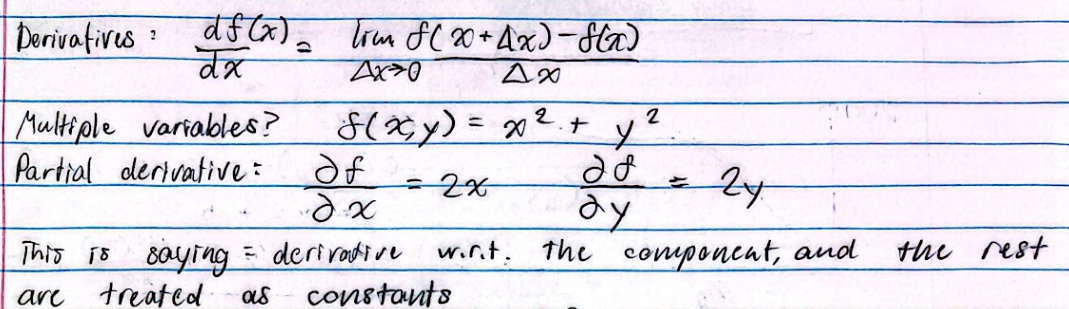 Derivatives : df(x)/dx = lim Δx→0 f(x+Δx)-f(x)/Δx
Multiple variables? f(x,y) = x² + y²
Partial derivative: ∂f/∂x = 2x ∂f/∂y = 2y
This is saying = derivative w.r.t. the component, and the rest
are treated as constants